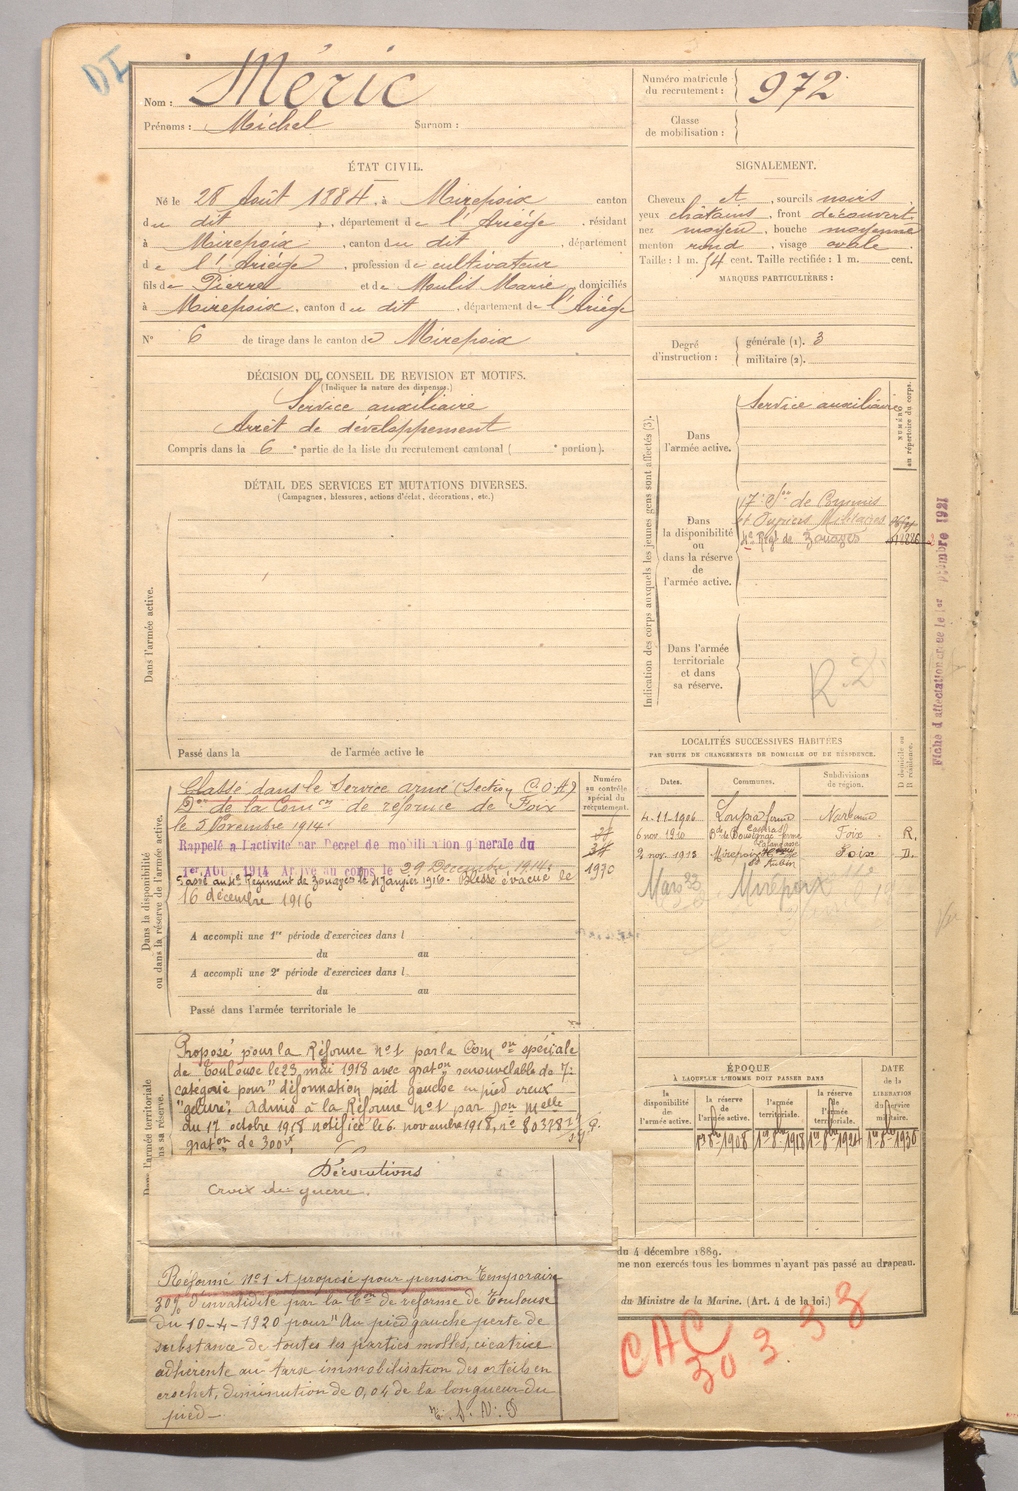 Nom : Méric
Prénoms : Michel Surnom :
Numéro matricule du recrutement : 972
Classe de mobilisation :
ÉTAT CIVIL.
Né le 28 Août 1884, à Mirepoix canton
du dit, département de l'Ariège, résidant
à Mirepoix, canton du dit, département
de l'Ariège, profession de cultivateur
fils de Pierre et de Moulis Marie, domiciliés
à Mirepoix, canton du dit, département de l'Ariège
N° 6 de tirage dans le canton de Mirepoix
SIGNALEMENT.
Cheveux et, sourcils noirs
yeux châtains, front découvert
nez moyen, bouche moyenne
menton rond, visage ovale
Taille : 1 m. 54 cent. Taille rectifiée : 1 m. cent.
MARQUES PARTICULIÈRES :
Degré d'instruction : générale (1). 3
militaire (2).
DÉCISION DU CONSEIL DE REVISION ET MOTIFS.
(Indiquer la nature des dispenses.)
Service auxiliaire
Arrêt de développement
Compris dans la 6e partie de la liste du recrutement cantonal ( e portion).
DÉTAIL DES SERVICES ET MUTATIONS DIVERSES.
(Campagnes, blessures, actions d'éclat, décorations, etc.)
Dans l'armée active.
Passé dans la de l'armée active le
Indication des corps auxquels les jeunes gens sont affectés (3).
NUMÉRO au répertoire du corps.
Dans l'armée active.
Service auxiliaire
Dans la disponibilité ou dans la réserve de l'armée active.
17e Son de Commis
et Ouvriers Militaires
4e Régt de Zouaves
Dans l'armée territoriale et dans sa réserve.
R.D
Fiche d'affectation créée le 1er 1921
LOCALITÉS SUCCESSIVES HABITÉES
PAR SUITE DE CHANGEMENTS DE DOMICILE OU DE RÉSIDENCE.
Dates. Communes. Subdivisions de région. D domicile ou R résidence.
4-11-1906 Narbonne
6 nov. 1910 Foix R.
2 nov. 1913 Mirepoix Foix D.
Mars 33 Mirepoix
Dans la disponibilité ou dans la réserve de l'armée active.
Numéro au contrôle spécial du recrutement.
Classé dans le Service armé (Section C.O.A)
Don de la Comon de réforme de Foix
le 5 Novembre 1914.
Rappelé à l'activité par Décret de mobilisation générale du
1er AOUT 1914 Arrivé au corps le 29 Décembre 1914.
1930
Passé au 4e Régiment de Zouaves le 4 Janvier 1916. Blessé évacué le
16 décembre 1916
A accompli une 1re période d'exercices dans l
du au
A accompli une 2e période d'exercices dans l
du au
Passé dans l'armée territoriale le
l'armée territoriale
ns sa réserve.
Proposé pour la Réforme n°1 par la Comon spéciale
de Toulouse le 23 mai 1918 avec graton renouvelable de 7e
catégorie pour "déformation pied gauche en pied creux
"gelure". Admis à la Réforme n°1 par Don Melle
du 17 octobre 1918 notifiée le 6 novembre 1918, n° 80328
graton de 300f.
Décorations
Croix de guerre.
Réformé N°1 et proposé pour pension temporaire
30% d'invalidité par la Con de réforme de Toulouse
du 10-4-1920 pour "Au pied gauche perte de
substance de toutes les parties molles, cicatrice
adhérente au tarse immobilisation des orteils en
crochet, diminution de 0,04 de la longueur du
pied—
ÉPOQUE
À LAQUELLE L'HOMME DOIT PASSER DANS
DATE de la LIBÉRATION du service militaire.
la disponibilité de l'armée active.
la réserve de l'armée active.
l'armée territoriale.
la réserve de l'armée territoriale.
1er 8bre 1908 1er 8bre 1918 1er 8bre 1924 1er 8bre 1930
du 4 décembre 1889.
me non exercés tous les hommes n'ayant pas passé au drapeau.
du Ministre de la Marine. (Art. 4 de la loi.)
CAC
30 338